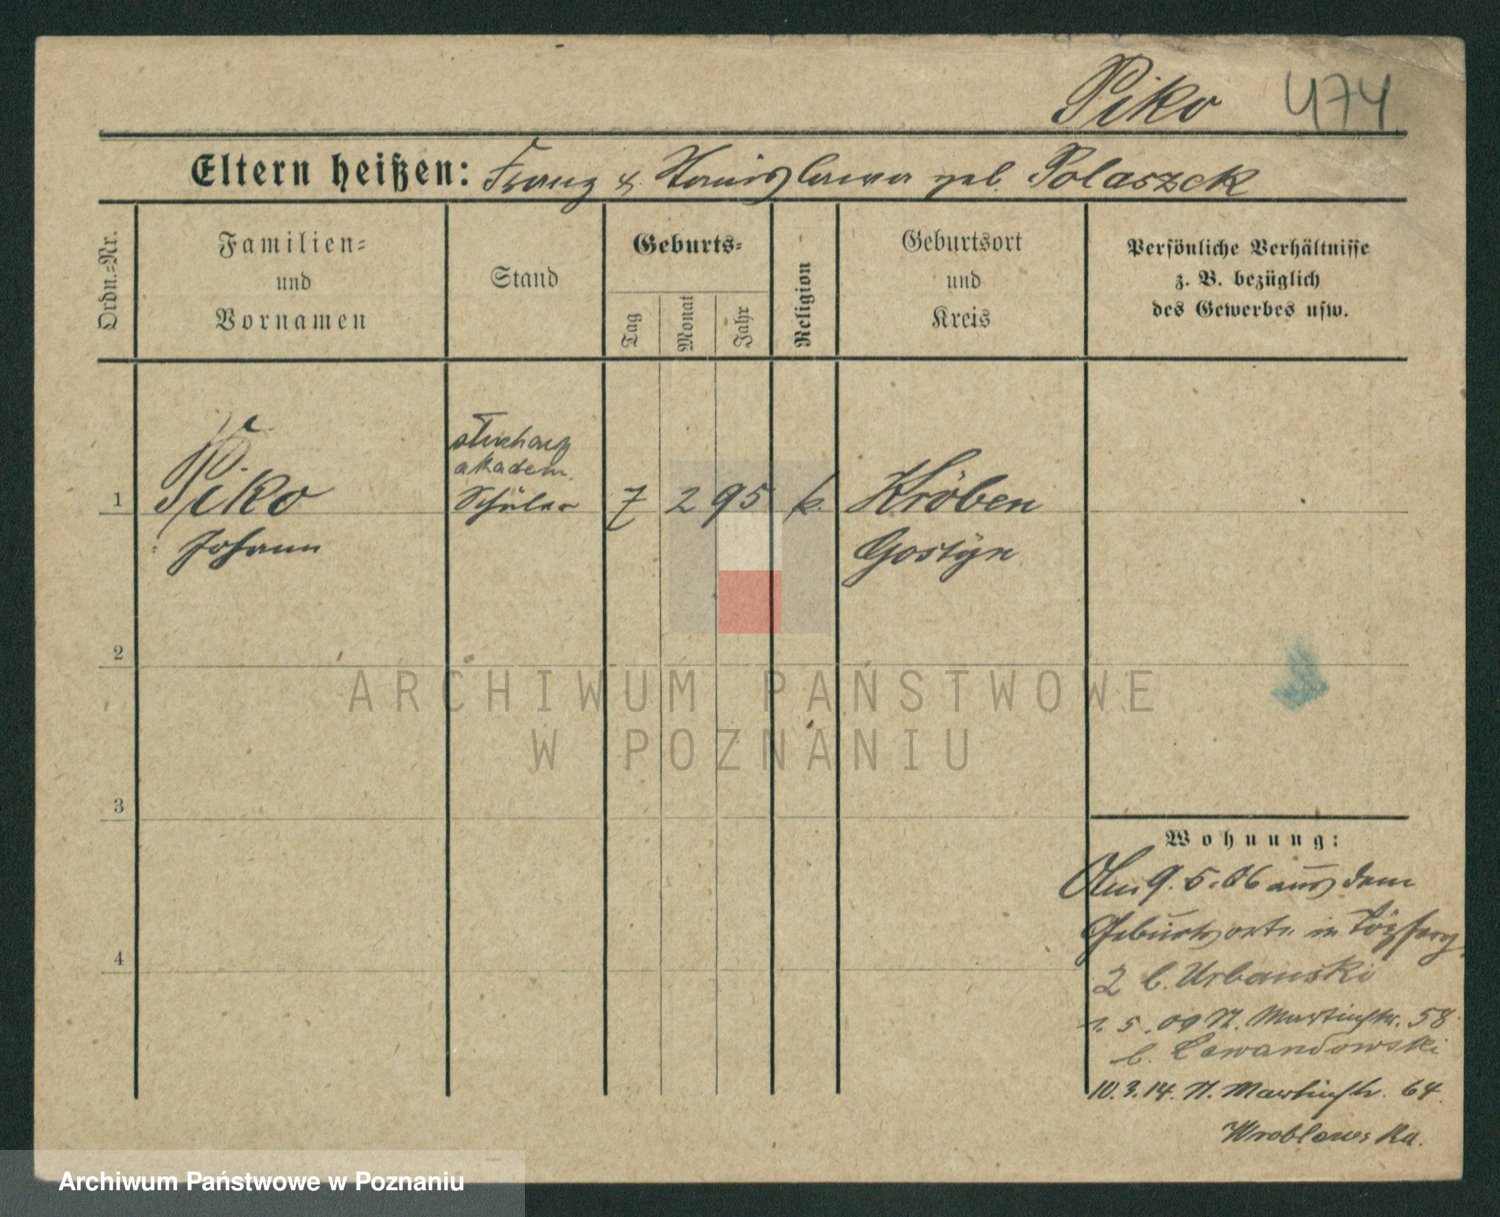 Piko 474
Eltern heißen: Franz & Stanislawa geb. Polaszek
Ordn.=Nr.
Familien=
und
Vornamen
Stand
Geburts=
Tag
Monat
Jahr
Religion
Geburtsort
und
Kreis
Persönliche Verhältnisse
z. B. bezüglich
des Gewerbes usw.
akadem.
1 Piko Schüler 7 2 95 k. Kröben
Johann Gostyn
2
3
4
Wohnung:
Am 9.5.06 aus dem
Geburtsorte in
2 b. Urbanski
1.5.09 St. Martinstr. 58
b. Lewandowski
10.3.14. St. Martinstr. 64.
Wroblewska.
ARCHIWUM PAŃSTWOWE
W POZNANIU
Archiwum Państwowe w Poznaniu